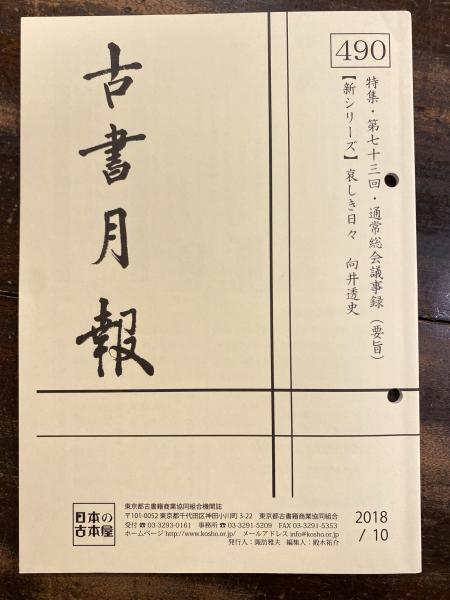 490
特集・第七十三回・通常総会議事録（要旨）
【新シリーズ】哀しき日々　向井透史
古書月報
日本の
古本屋
東京都古書籍商業協同組合機関誌
〒101-0052 東京都千代田区神田小川町 3-22　東京都古書籍商業協同組合
受付 ☎ 03-3293-0161　事務所 ☎ 03-3291-5209　FAX 03-3291-5353
ホームページ http://www.kosho.or.jp/　メールアドレス info@kosho.or.jp
発行人：諏訪雅夫　編集人：殿木祐介
2018
/ 10